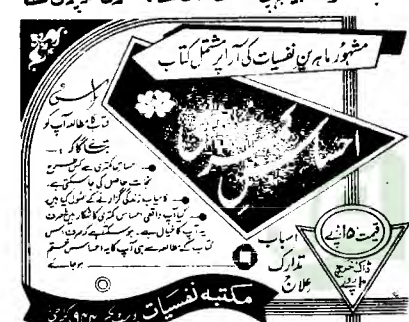 مشہور ماہرینِ نفسیات کی آرا پر مشتمل کتاب
احساسِ کمتری
کتاب کا مطالعہ آپ کو
بتائے گا کہ :—
احساسِ کمتری سے کس طرح
نجات حاصل کی جا سکتی ہے۔
کامیاب زندگی گزارنے کے اصول کیا ہیں
کیا آپ واقعی احساسِ کمتری کا شکار ہیں یا صرف
یہ آپ کا خیال ہے۔ ہو سکتا ہے کہ صرف اس
کتاب کے مطالعہ سے ہی آپ کا یہ احساس ختم
ہو جائے
اسباب
تدارک
علاج
قیمت ۱۵ روپے
ڈاک خرچ
۱۰ روپے
مکتبہ نفسیات پوسٹ بکس ۹۴۴ کراچی